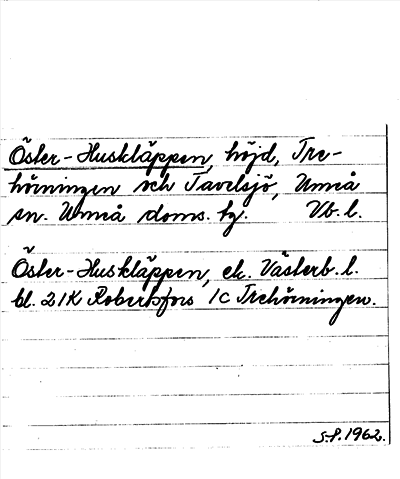 Öster-Huskläppen, höjd, Tre-
hörningen och Tavelsjö, Umeå
sn. Umeå doms. hg. Vb. l.
Öster-Huskläppen, ek. Västerb. l.
bl. 21K Robertsfors 1c Trehörningen.
S.P. 1962.